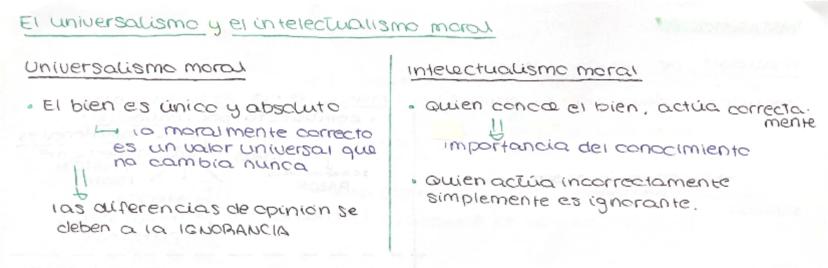 El universalismo y el intelectualismo moral
Universalismo moral
• El bien es único y absoluto
↳ lo moralmente correcto
es un valor universal que
no cambia nunca
⇓
las diferencias de opinión se
deben a la IGNORANCIA
Intelectualismo moral
• Quien conoce el bien, actúa correcta-
mente
⇓
importancia del conocimiento
• Quien actúa incorrectamente
simplemente es ignorante.